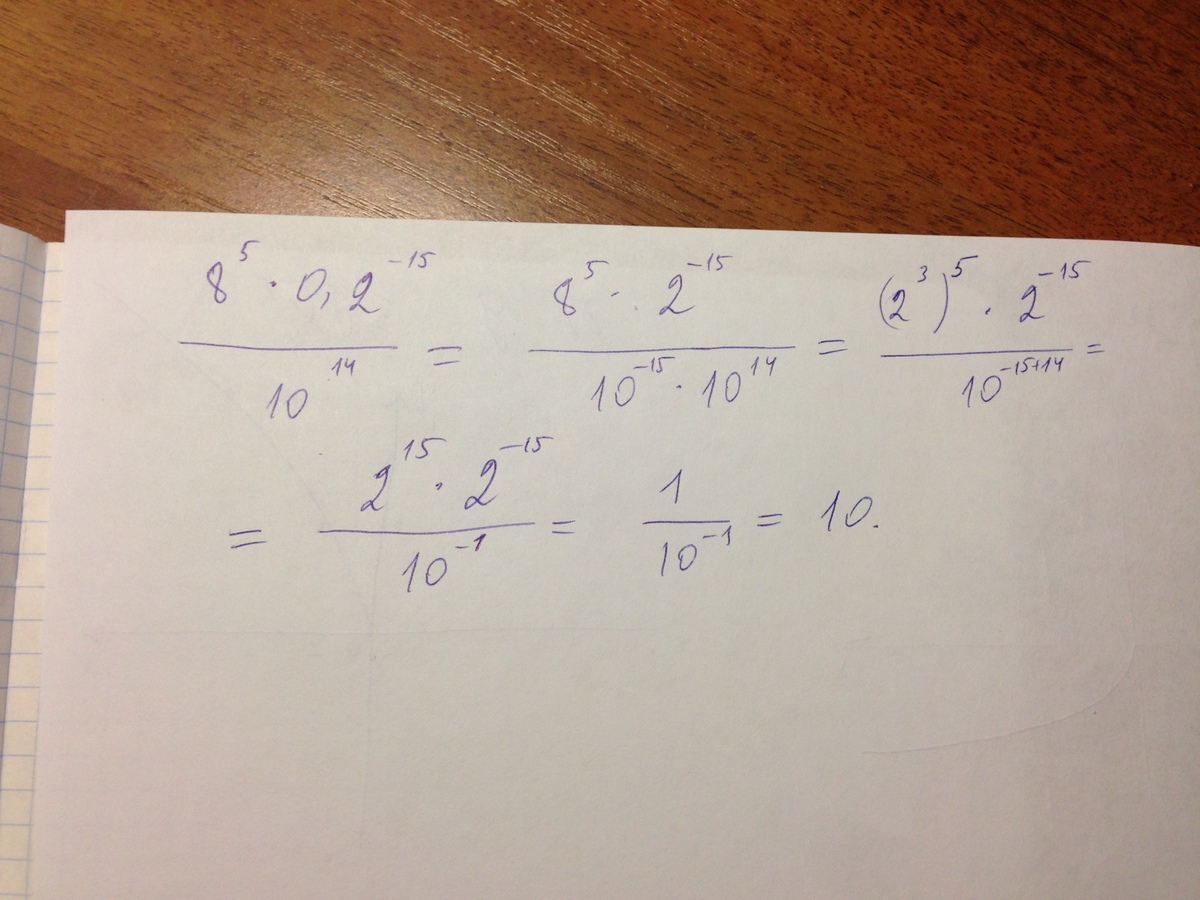 \frac{8^5 · 0,2^{-15}}{10^{14}} = \frac{8^5 · 2^{-15}}{10^{-15} · 10^{14}} = \frac{(2^3)^5 · 2^{-15}}{10^{-15+14}} =
= \frac{2^{15} · 2^{-15}}{10^{-1}} = \frac{1}{10^{-1}} = 10.